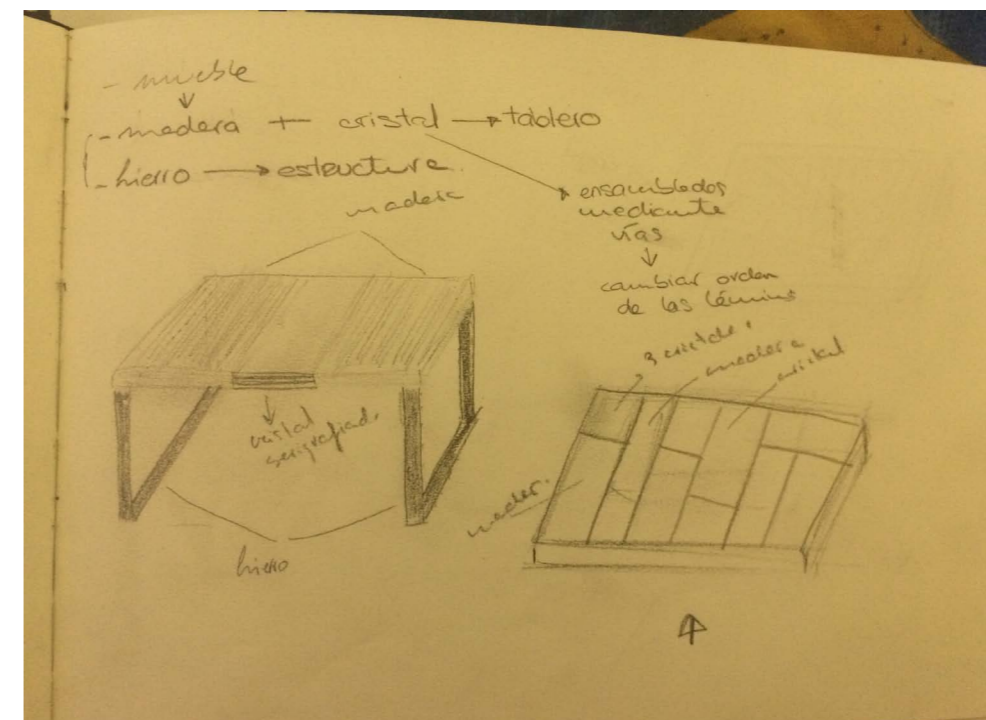 - mueble
↓
- madera + cristal → tablero
- hierro → estructura
ensamblados
mediante
vías
↓
cambiar orden
de las láminas
madera
cristal
serigrafiado
hierro
madera
cristal
mader.